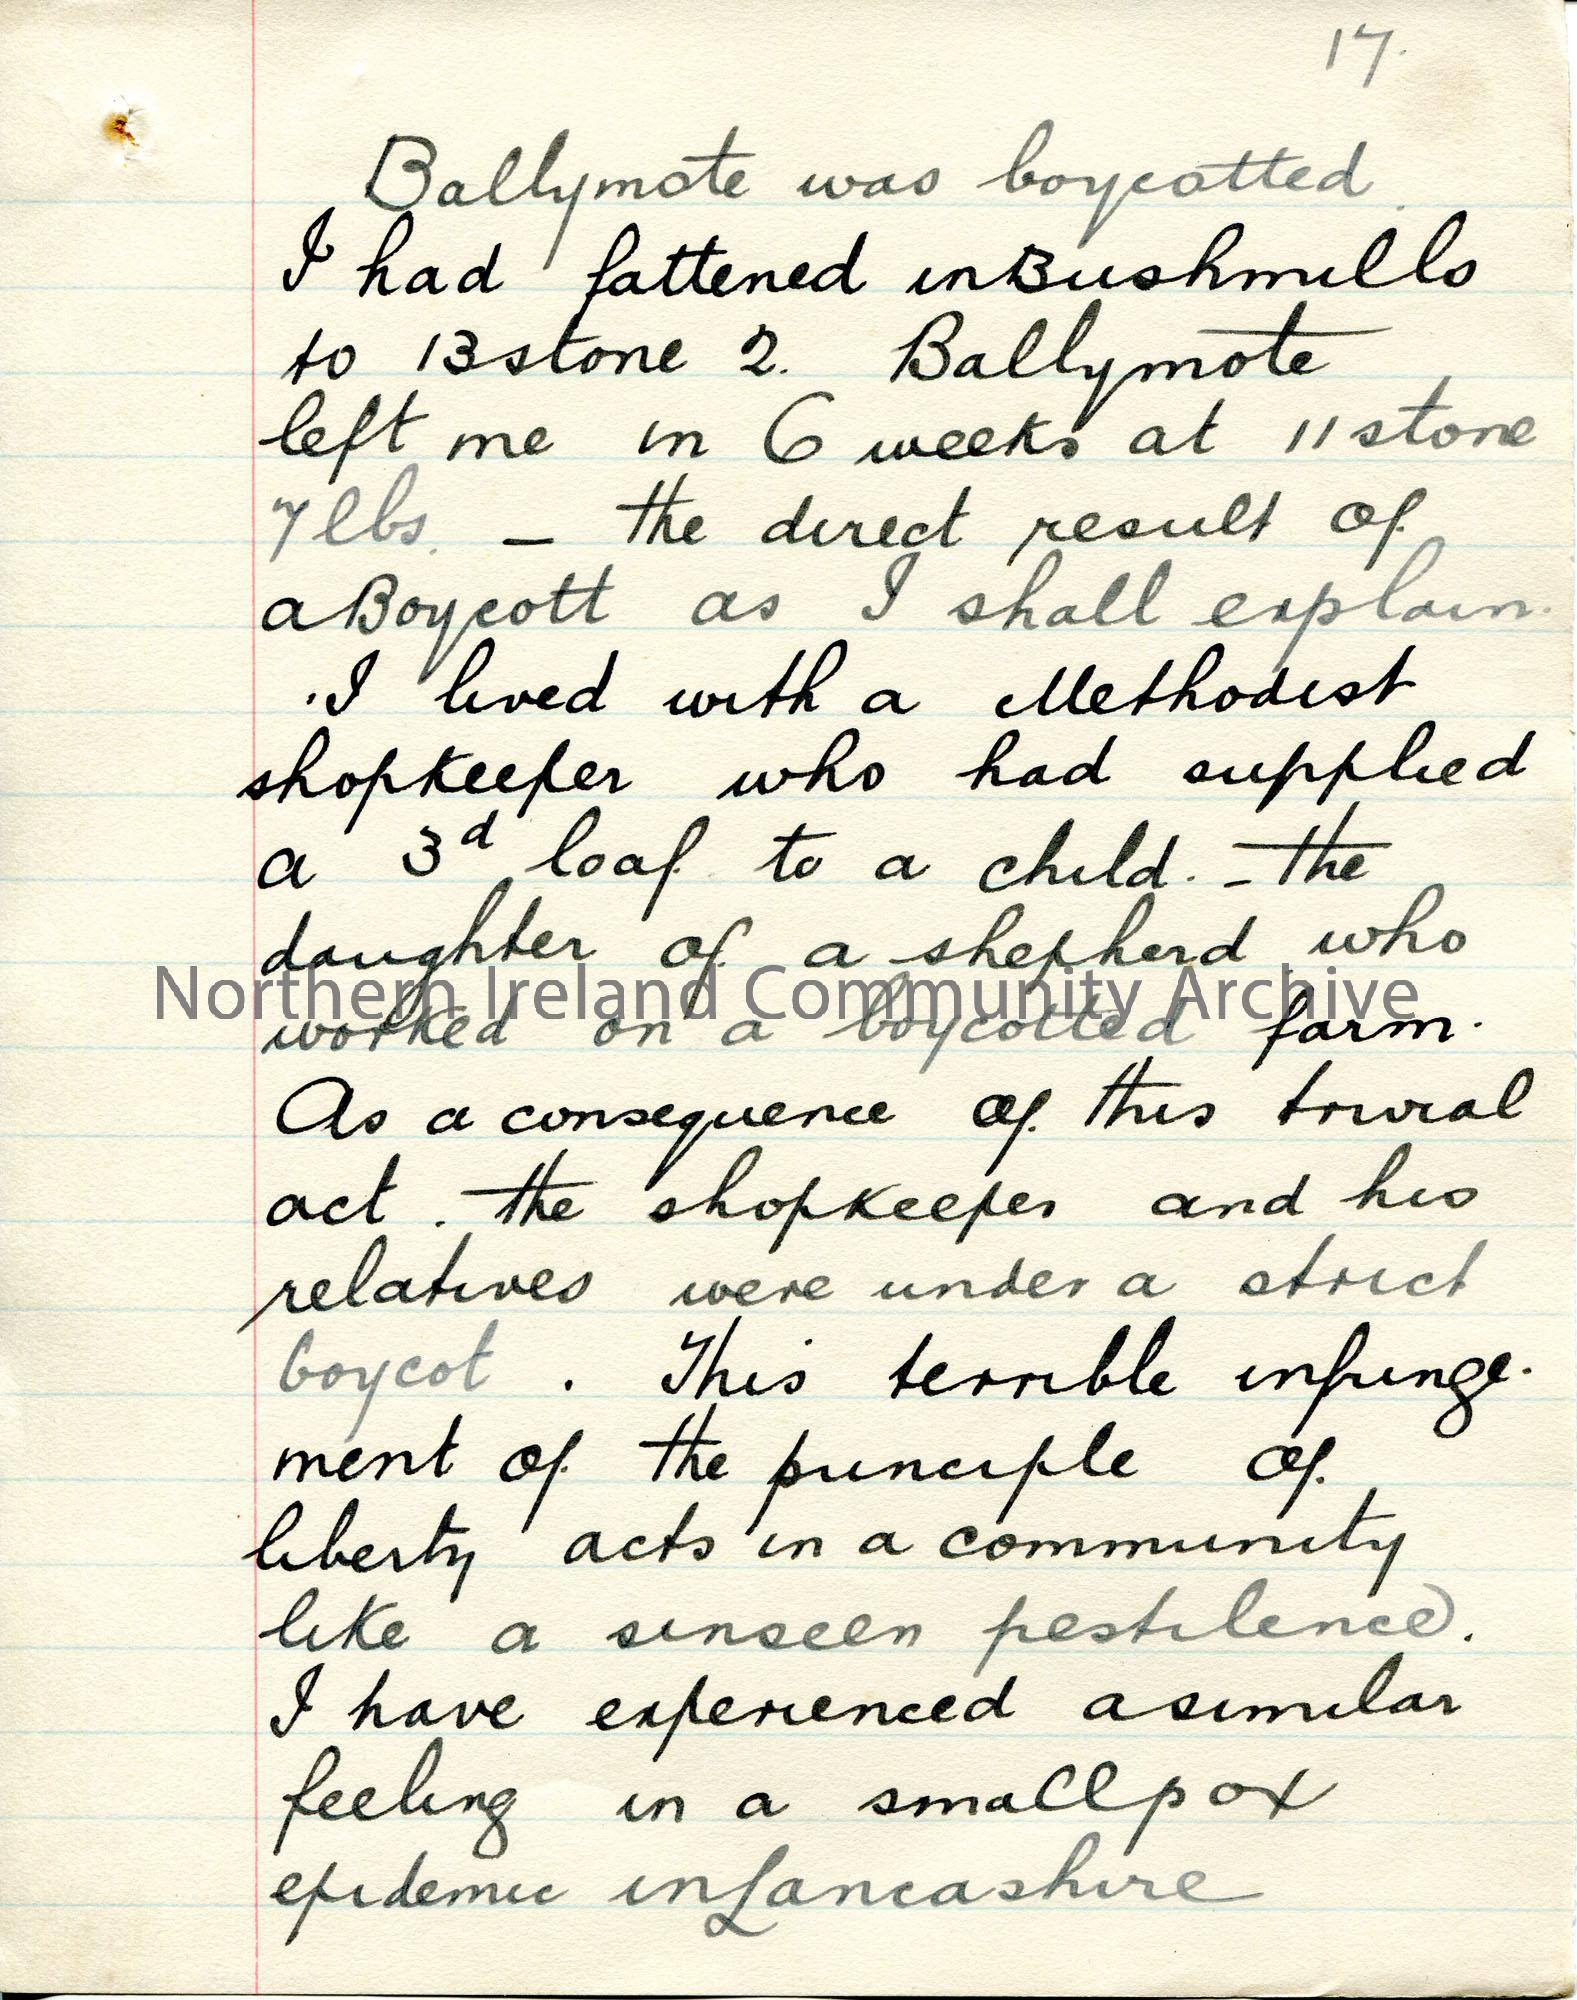 17.
Ballymote was boycotted.
I had fattened in Bushmills
to 13 stone 2. Ballymote
left me in 6 weeks at 11 stone
7 lbs. — the direct result of
a Boycott as I shall explain.
I lived with a Methodist
shopkeeper who had supplied
a 3d loaf to a child. - the
daughter of a shepherd who
Northern Ireland Community Archive
worked on a boycotted farm.
As a consequence of this trivial
act. the shopkeeper and his
relatives were under a strict
boycot. This terrible infringe-
ment of the principle of
liberty acts in a community
like a unseen pestilence.
I have experienced a similar
feeling in a small pox
epidemic in Lancashire